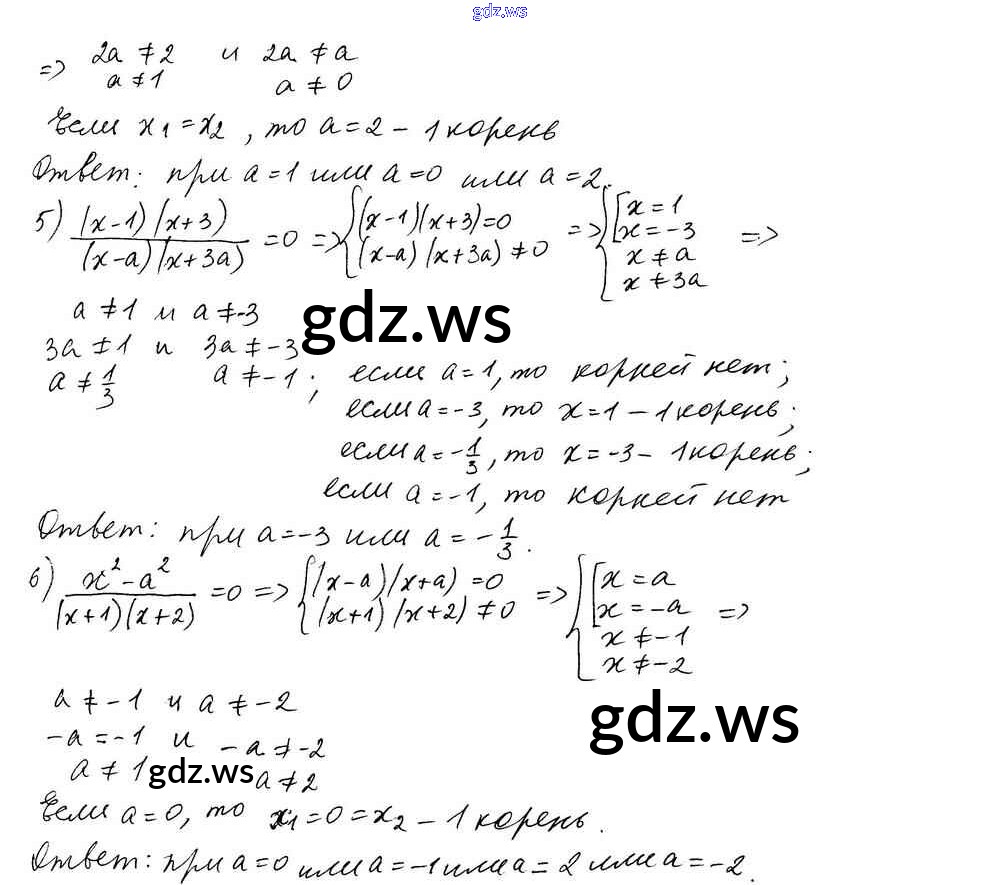 gdz.ws
=> 2a ≠ 2 и 2a ≠ a
a ≠ 1 a ≠ 0
Если x₁ = x₂, то a = 2 – 1 корень
Ответ: при a = 1 или a = 0 или a = 2.
5) (x-1)(x+3)/(x-a)(x+3a) = 0 => {(x-1)(x+3)=0 (x-a)(x+3a) ≠ 0 => {[x = 1 x = -3 x ≠ a x ≠ 3a =>
a ≠ 1 и a ≠ -3
gdz.ws
3a ≠ 1 и 3a ≠ -3
a ≠ 1/3 a ≠ -1; если a = 1, то корней нет;
если a = -3, то x = 1 – 1 корень;
если a = -1/3, то x = -3 – 1 корень;
если a = -1, то корней нет
Ответ: при a = -3 или a = -1/3.
6) x² - a²/(x+1)(x+2) = 0 => {(x-a)(x+a) = 0 (x+1)(x+2) ≠ 0 => {[x = a x = -a x ≠ -1 x ≠ -2 =>
a ≠ -1 и a ≠ -2
gdz.ws
-a = -1 и -a ≠ -2
a ≠ 1 gdz.ws a ≠ 2
Если a = 0, то x₁ = 0 = x₂ – 1 корень.
Ответ: при a = 0 или a = -1 или a = 2 или a = -2.